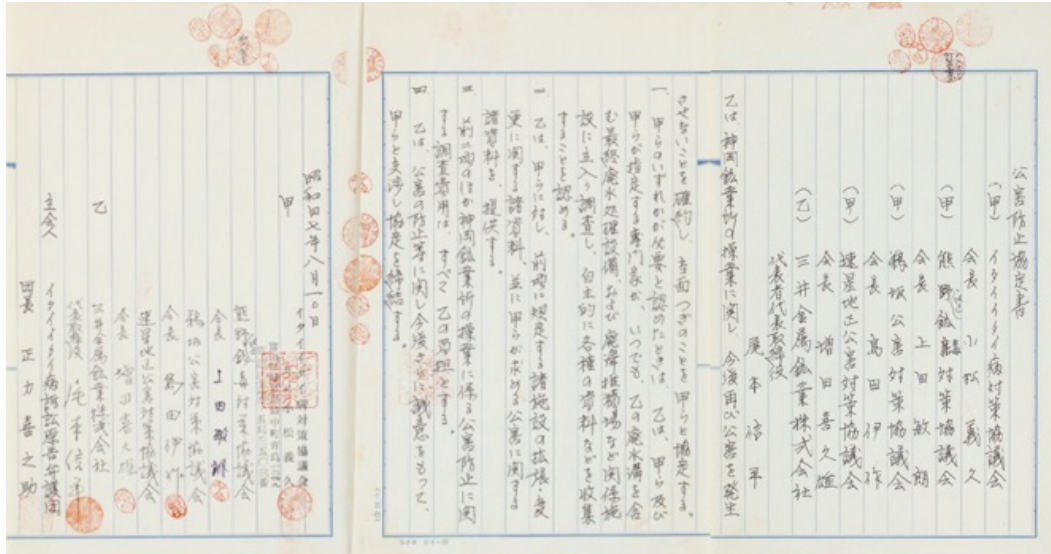 公害防止協定書
（甲）イタイイタイ病対策協議会
会長 小松義久
（甲）熊野鉱害対策協議会
会長 上田敏朗
（甲）鵜坂公害対策協議会
会長 高田伊作
（甲）速星地区公害対策協議会
会長 増田喜久雄
（乙）三井金属鉱業株式会社
代表者代表取締役
尾本信平
乙は神岡鉱業所の操業に関し、今後再び公害を発生
させないことを確約し、当面つぎのことを甲らと協定する。
一 甲らのいずれかが必要と認めたときは、乙は、甲ら及び
甲らが指定する専門家が、いつでも、乙の廃水溝を含
む最終廃水処理設備、および廃滓堆積場など関係施
設に立入り調査し、自主的に各種の資料などを収集
することを認める。
二 乙は、甲らに対し、前項に規定する諸施設の拡張・変
更に関する諸資料、並に甲らが求める公害に関する
諸資料を、提供する。
三 前二項のほか神岡鉱業所の操業に係る公害防止に関
する調査費用は、すべて乙の負担とする。
四 乙は、公害の防止等に関し今後ともに誠意をもって、
甲らと交渉し協定を締結する。
昭和四七年八月一〇日
甲 イタイイタイ病対策協議会
小松義久
熊野鉱害対策協議会
会長 上田敏朗
鵜坂公害対策協議会
会長 高田伊作
速星地区公害対策協議会
会長 増田喜久雄
乙 三井金属鉱業株式会社
代表取締役 尾本信平
立会人 イタイイタイ病訴訟原告弁護団
団長 正力喜之助